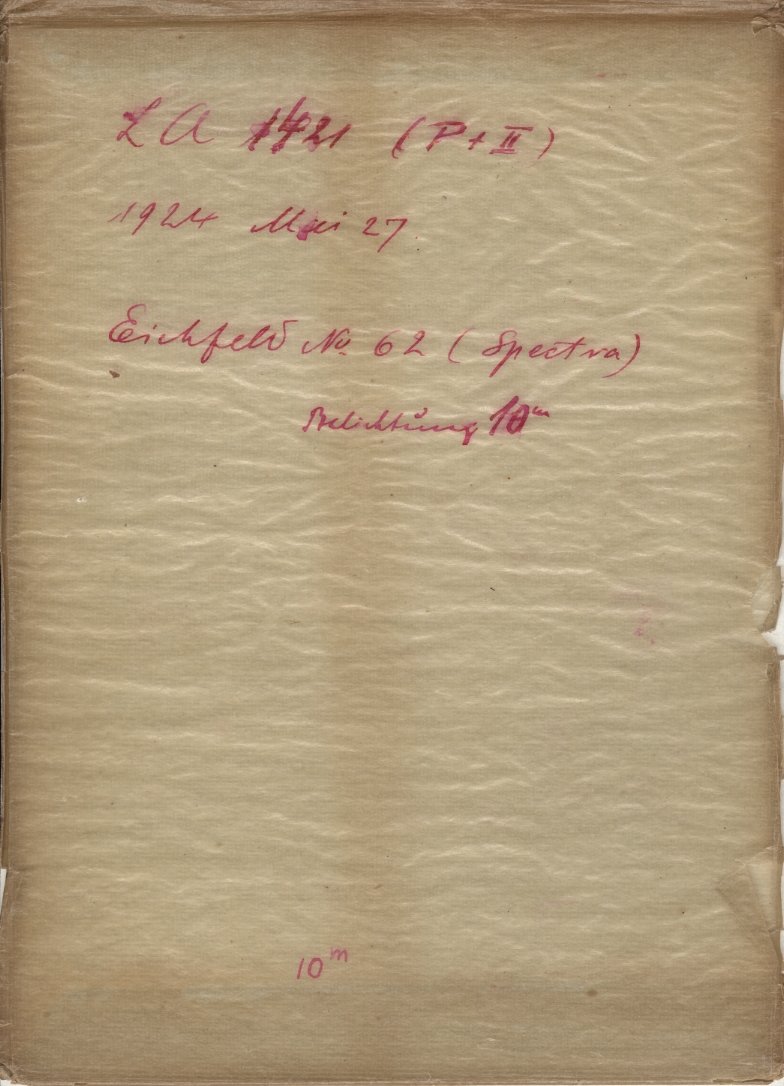 LA 1421 (P + II)
1924 Mai 27
Eichfeld No. 62 (Spectra)
Belichtung 10m
10m